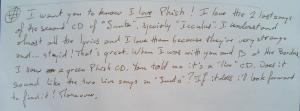 I want you to know I love Phish! I love the 2 last songs
of the second CD of "Junta", specially "Icculus". I understand
almost all the lyrics and I love them because they're very strange
and... stupid! That's great. When I was with you and B at the Border
I saw a green Phish CD. You told me it's a "live" CD. Does it
sound like the two live songs in "Junta"? If it does I'll look forward
to find it! Thanks